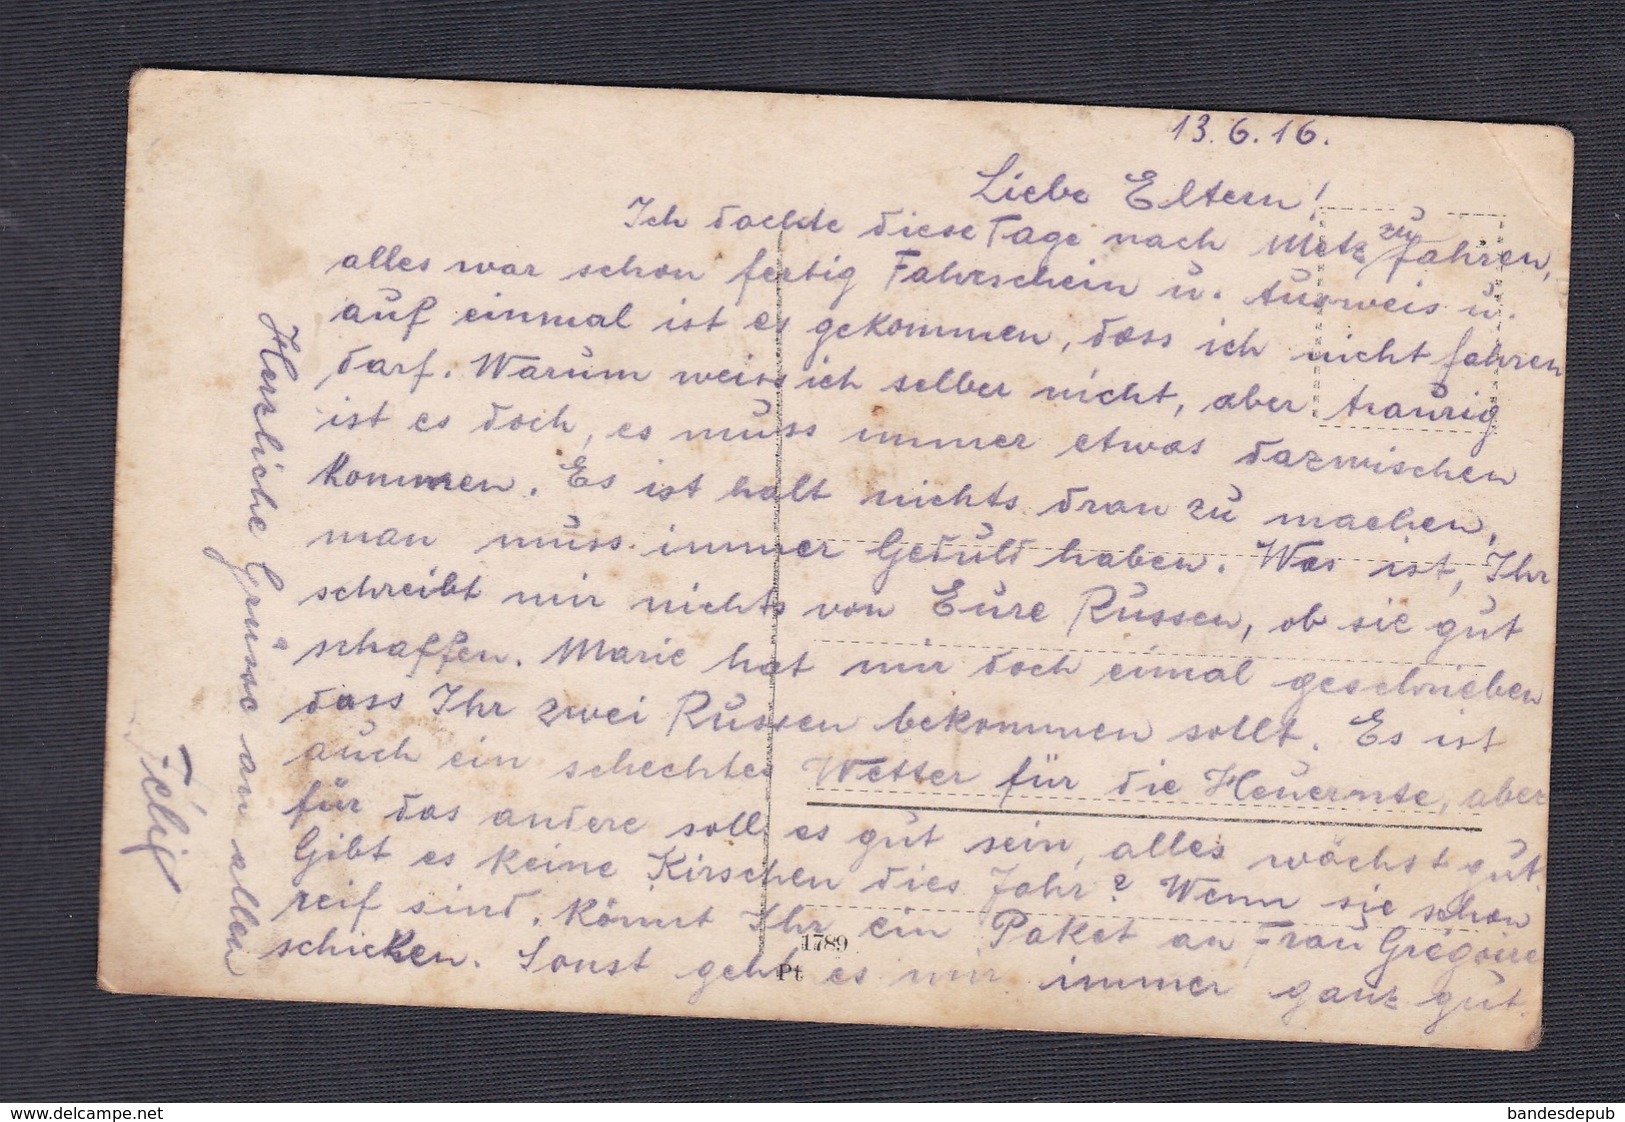 13.6.16.
Liebe Eltern!
Ich dachte diese Tage nach Metz zu fahren,
alles war schon fertig Fahrschein u. Ausweis u.
auf einmal ist es gekommen, dass ich nicht fahren
darf. Warum weiss ich selber nicht, aber traurig
ist es doch, es muss immer etwas dazwischen
kommen. Es ist halt nichts dran zu machen,
man muss immer Geduld haben. Was ist, Ihr
schreibt mir nichts von Eure Russen, ob sie gut
schaffen. Marie hat mir doch eimal geschrieben
dass Ihr zwei Russen bekommen sollt. Es ist
auch ein schechtes Wetter für die Heuernte, aber
für das andere soll es gut sein, alles wächst gut.
Gibt es keine Kirschen dies Jahr? Wenn sie schon
reif sind. könnt Ihr ein Paket an Frau Grégoire
schicken. Sonst geht es mir immer ganz gut.
Herzliche Grüsse an allen
Félix
1789
Pt
www.delcampe.net
bandesdepub